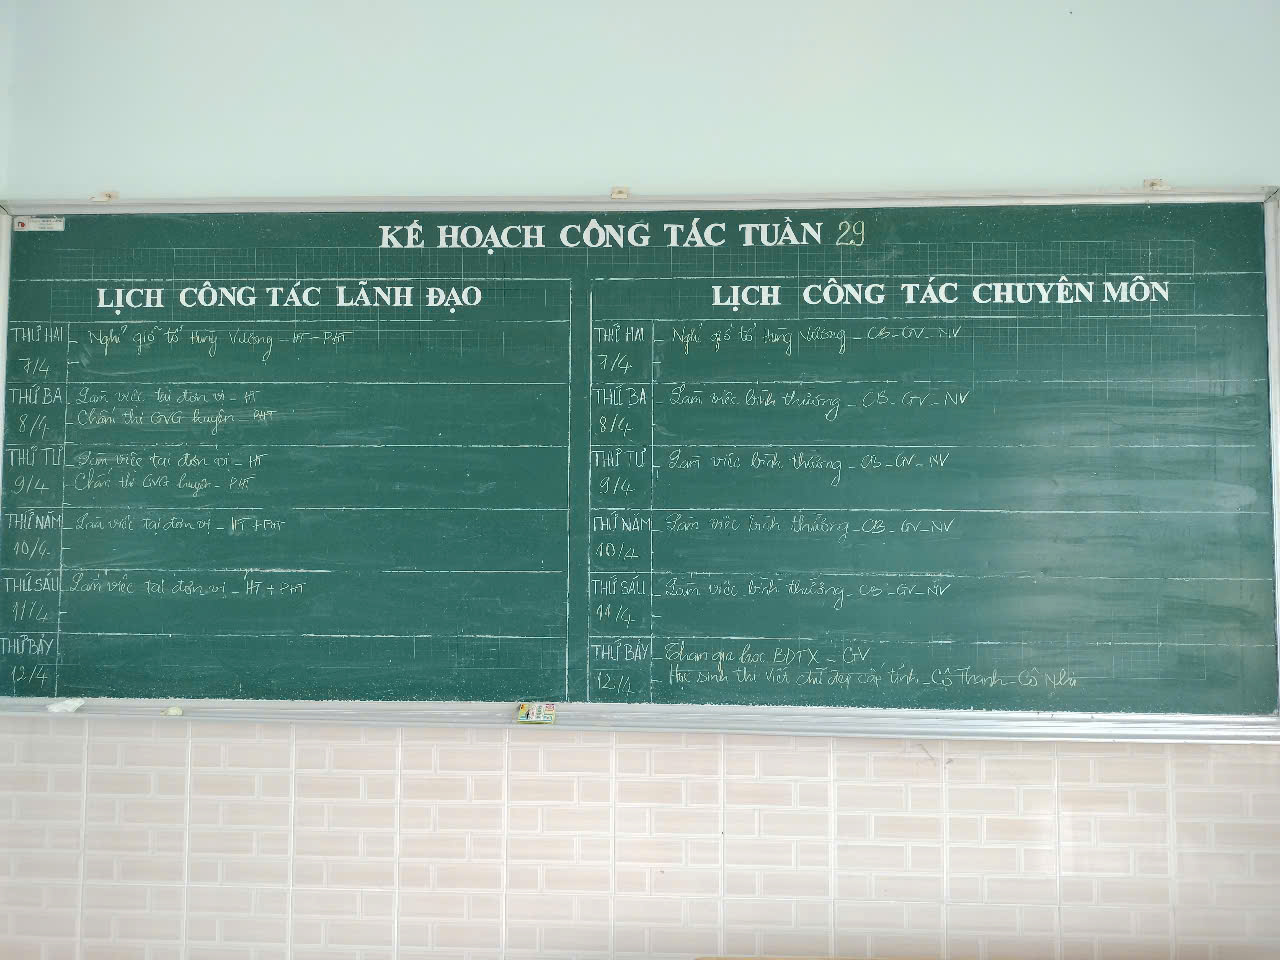 KẾ HOẠCH CÔNG TÁC TUẦN 29
LỊCH CÔNG TÁC LÃNH ĐẠO
THỨ HAI - Nghỉ giỗ tổ Hùng Vương - HT - PHT
7/4 -
THỨ BA - Làm việc tại đơn vị - HT
8/4 - Chấm thi GVG huyện - PHT
THỨ TƯ - Làm việc tại đơn vị - HT
9/4 - Chấm thi GVG huyện - PHT
THỨ NĂM - Làm việc tại đơn vị - HT + PHT
10/4 -
THỨ SÁU - Làm việc tại đơn vị - HT + PHT
11/4 -
THỨ BẢY
12/4
LỊCH CÔNG TÁC CHUYÊN MÔN
THỨ HAI - Nghỉ giỗ tổ Hùng Vương - CB - GV - NV
7/4 -
THỨ BA - Làm việc bình thường - CB - GV - NV
8/4 -
THỨ TƯ - Làm việc bình thường - CB - GV - NV
9/4 -
THỨ NĂM - Làm việc bình thường - CB - GV - NV
10/4 -
THỨ SÁU - Làm việc bình thường - CB - GV - NV
11/4 -
THỨ BẢY - Tham gia học BDTX - GV
12/4 - Học sinh thi viết chữ đẹp cấp tỉnh - Cô Thanh - Cô Nhi